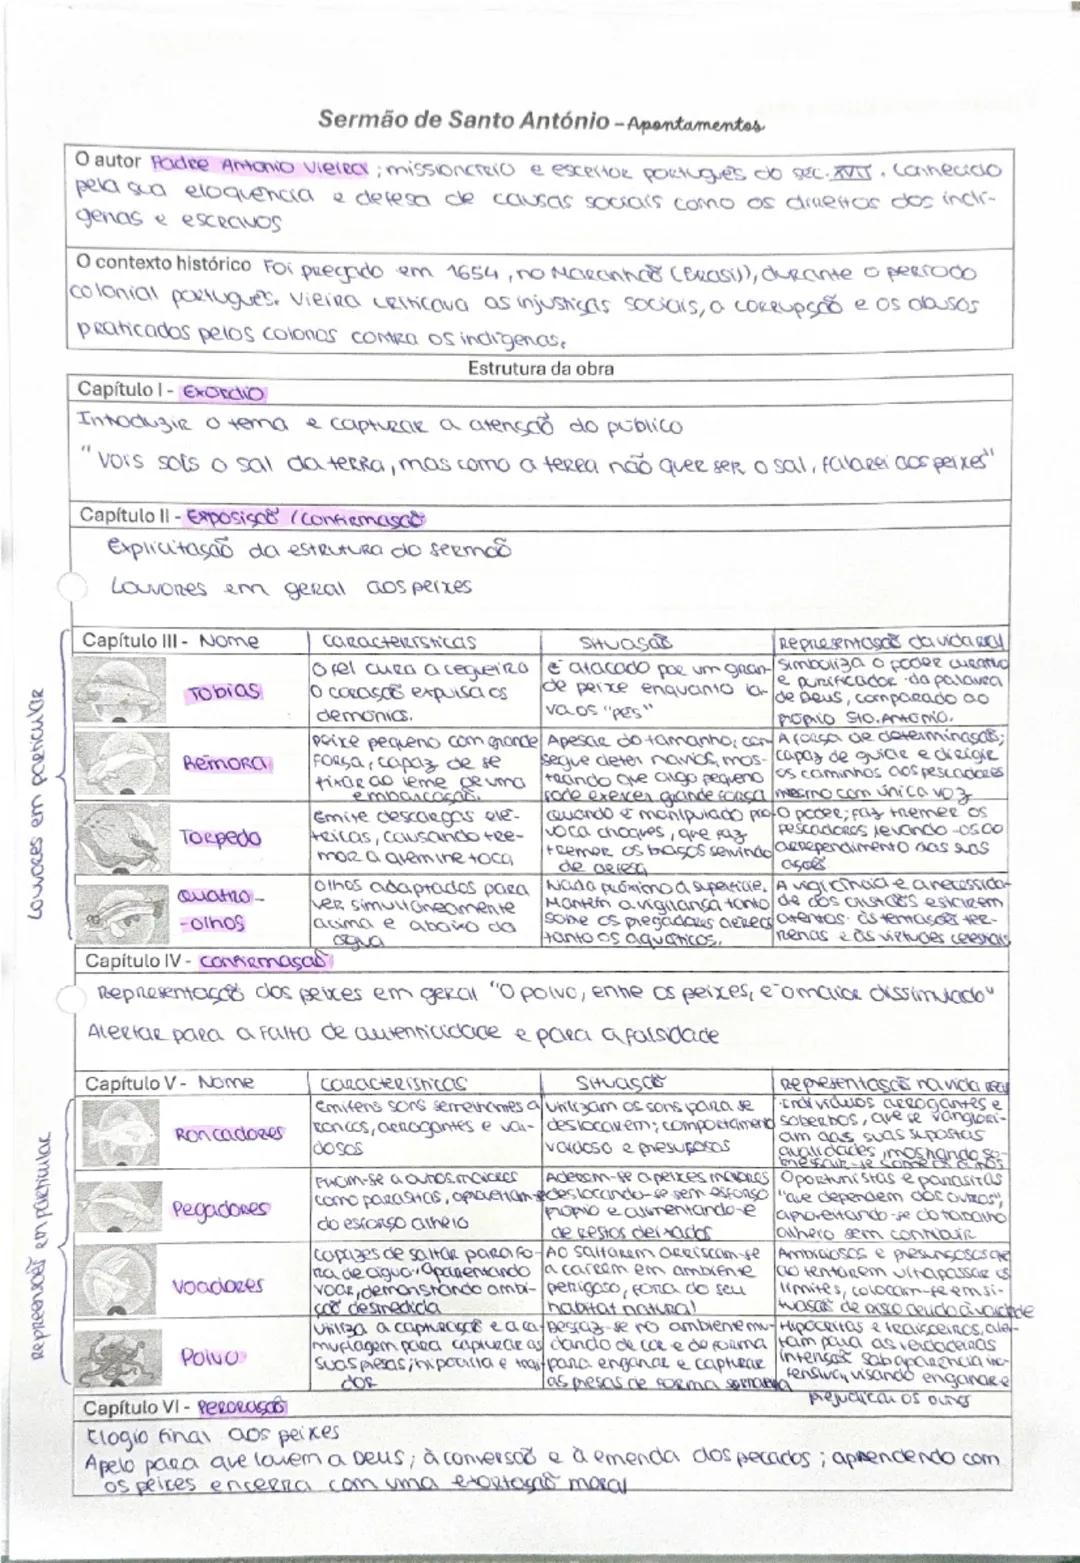 Sermão de Santo António - Apontamentos
O autor Padre António Vieira ; missionário e escritor português do séc. XVII. Conhecido
pela sua eloquência e defesa de causas sociais como os direitos dos indí-
genas e escravos
O contexto histórico Foi pregado em 1654, no Maranhão (Brasil), durante o período
colonial português. Vieira criticava as injustiças sociais, a corrupção e os abusos
praticados pelos colonos contra os indígenas.
Estrutura da obra
Capítulo I - Exórdio
Introduzir o tema e capturar a atenção do público
"Vois sois o sal da terra, mas como a terra não quer ser o sal, falarei aos peixes"
Capítulo II - Exposição / Confirmação
Explicitação da estrutura do sermão
Louvores em geral aos peixes
Louvores em particular
Capítulo III - Nome
Características
Situação
Representação da vida real
Tobias
O fel cura a cegueira
O coração expulsa os
demónios.
É atacado por um gran-
de peixe enquanto la-
va os "pés"
Simboliza o poder curativo
e purificador da palavra
de Deus, comparado ao
próprio Sto. António.
Rémora
Peixe pequeno com grande
força, capaz de se
fixar ao leme de uma
embarcação.
Apesar do tamanho, con-
segue deter navios, mos-
trando que algo pequeno
pode exercer grande força
A força de determinação;
capaz de guiar e dirigir
os caminhos dos pescadores
mesmo com única voz
Torpedo
Emite descargas elé-
tricas, causando tre-
mor a quem lhe toca
Quando é manipulado pro-
voca choques, que faz
tremer os braços servindo
de defesa
O poder; faz tremer os
pescadores levando-os ao
arrependimento das suas
ações
Quatro-
-olhos
Olhos adaptados para
ver simultaneamente
acima e abaixo da
água
Nada próximo à superfície.
Mantém a vigilança tanto
sobre os pregadores aéreos
tanto os aquáticos.
A vigilância e a necessida-
de dos cristãos estarem
atentos às tentações ter-
renas e às virtudes celestiais
Capítulo IV - Confirmação
Representação dos peixes em geral "O polvo, entre os peixes, é o maior dissimulado"
Alertar para a falta de autenticidade e para a falsidade
Repreensões em particular
Capítulo V - Nome
Características
Situação
Representação na vida real
Roncadores
Emitem sons semelhantes a
roncos, arrogantes e vai-
dosos
Utilizam os sons para se
deslocarem; comportamento
vaidoso e presunçoso
Indivíduos arrogantes e
soberbos, que se vanglori-
am das suas supostas
qualidades, mostrando
Pegadores
Fixam-se a outros maiores
como parasitas, aproveitam-se
do esforço alheio
Aderem-se a peixes maiores
deslocando-se sem esforço
próprio e alimentando-e
de restos deixados
Oportunistas e parasitas
"que dependem dos outros",
aproveitando-se do trabalho
alheio sem contribuir
Voadores
Capazes de saltar para fo-
ra de água. Aparentando
voar, demonstrando ambi-
ção desmedida
Ao saltarem arriscam-se
a cairem em ambiente
perigoso, fora do seu
habitat natural
Ambiciosos e presunçosos que
ao tentarem ultrapassar os
limites, colocam-se em si-
tuação de risco devido à vaidade
Polvo
Utiliza a capturação e a ca-
muflagem para capturar as
suas presas; hipocrita e trai-
dor
Desfaz-se no ambiente mu-
dando de cor e de forma
para enganar e capturar
as presas de forma
Hipócritas e traiçoeiros, aler-
tam para as verdadeiras
intenções sob aparência ino-
fensiva, visando enganar e
prejudicar os outros
Capítulo VI - Peroração
Elogio final aos peixes
Apelo para que louvem a Deus; à conversão e à emenda dos pecados; aprendendo com
os peixes encerra com uma exortação moral